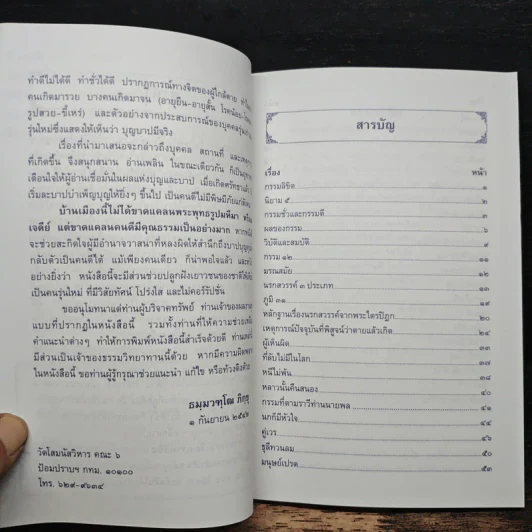 ทำดีไม่ได้ดี ทำชั่วได้ดี ปรากฏการณ์ทางจิตของผู้ใกล้ตาย ทำไม
คนเกิดมารวย บางคนเกิดมาจน (อายุยืน-อายุสั้น โรคน้อย-โรค
รูปสวย-ขี้เหร่) และตัวอย่างจากประสบการณ์ของบุคคลรุ่นเก่า
รุ่นใหม่ซึ่งแสดงให้เห็นว่า บุญบาปมีจริง
เรื่องที่นำมาเสนอจะกล่าวถึงบุคคล สถานที่ และเหตุ
ที่เกิดขึ้น จึงสนุกสนาน อ่านเพลิน ในขณะเดียวกัน ก็เป็น
เตือนใจให้ผู้อ่านเชื่อมั่นในผลแห่งบุญและบาป เมื่อเกิดศรัทธา
เริ่มละบาปบำเพ็ญบุญให้ยิ่งๆ ขึ้นไป เป็นคนดีไม่มีพิษมีภัย
บ้านเมืองนี้ไม่ได้ขาดแคลนพระพุทธรูปมหึมา
เจดีย์ แต่ขาดแคลนคนดีมีคุณธรรมเป็นอย่างมาก
จะช่วยสะกิดใจผู้มีอำนาจวาสนาที่หลงผิดให้สำนึกถึงบาปบุญ
กลับตัวเป็นคนดีได้ แม้เพียงคนเดียว ก็น่าพอใจแล้ว
อย่างยิ่งว่า หนังสือนี้จะมีส่วนช่วยปลูกฝังเยาวชนของชาติให้
เป็นคนรุ่นใหม่ ที่มีวิสัยทัศน์ โปร่งใส และไม่คอร์รัปชั่น
ขออนุโมทนาแด่ท่านผู้บริจาคทรัพย์ ท่านเจ้าของ
แบบที่ปรากฏในหนังสือนี้ รวมทั้งท่านที่ให้ความช่วยเหลือ
คำแนะนำต่างๆ ทำให้การพิมพ์หนังสือนี้สำเร็จด้วยดี ท่าน
มีส่วนเป็นเจ้าของธรรมวิทยาทานนี้ด้วย หากมีความผิดพลาด
ในหนังสือนี้ ขอท่านผู้รู้กรุณาช่วยแนะนำ แก้ไข หรือท้วงติงด้วย
ธมฺมวฑฺโฒ ภิกขุ
๑ กันยายน ๒๕๔๒
วัดโสมนัสวิหาร คณะ ๖
ป้อมปราบฯ กทม. ๑๐๑๐๐
โทร. ๖๒๙-๙๖๓๔
สารบัญ
เรื่อง หน้า
กรรมลิขิต ๑
นิยาม ๕ ๒
กรรมชั่วและกรรมดี ๓
ผลของกรรม ๖
วิบัติและสมบัติ ๙
กรรม ๑๒ ๑๑
มรณสมัย ๑๒
นรกสวรรค์ ๓ ประเภท ๑๓
ภูมิ ๓๑ ๑๙
หลักฐานเรื่องนรกสวรรค์จากพระไตรปิฎก ๒๐
เหตุการณ์ปัจจุบันที่พิสูจน์ว่าตายแล้วเกิด ๒๔
ผู้เห็นผิด ๓๓
ที่ลับไม่มีในโลก ๓๗
หนีไม่พ้น ๓๘
หลาวนั้นคืนสนอง ๔๐
กรรมที่ตามราวีท่านนายพล ๔๑
นกก็มีหัวใจ ๔๔
คู่เวร ๔๖
ธุลีทวนลม ๕๐
มนุษย์เปรต ๕๓